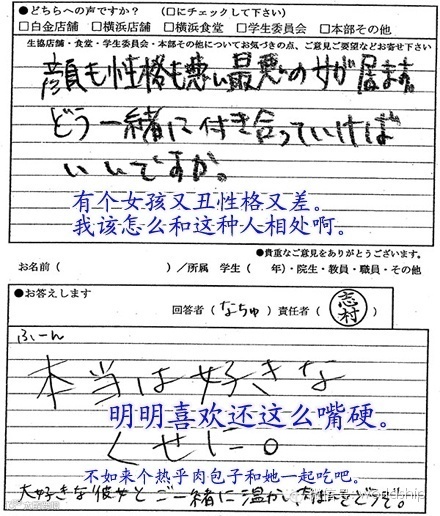 ●どちらへの声ですか？　（□にチェックして下さい）
□白金店舗・□横浜店舗・□横浜食堂・□学生委員会・□本部その他
生協店舗・食堂・学生委員会・本部その他についてお気づきの点、ご意見ご要望などお寄せ下さい
顔も性格も悪い最悪の女が居ます。
どう一緒に付き合っていけば
いいですか。
有个女孩又丑性格又差。
我该怎么和这种人相处啊。
●貴重なご意見をありがとうございます。
お名前（　　　　　）／所属　学生（　　年）・院生・教員・職員・その他
●お答えします
回答者（なちゅ）責任者（志村）
ふーん
本当は好きな
明明喜欢还这么嘴硬。
くせに。
不如来个热乎肉包子和她一起吃吧。
大好きな彼女とご一緒に温かい肉まんをどうぞ。